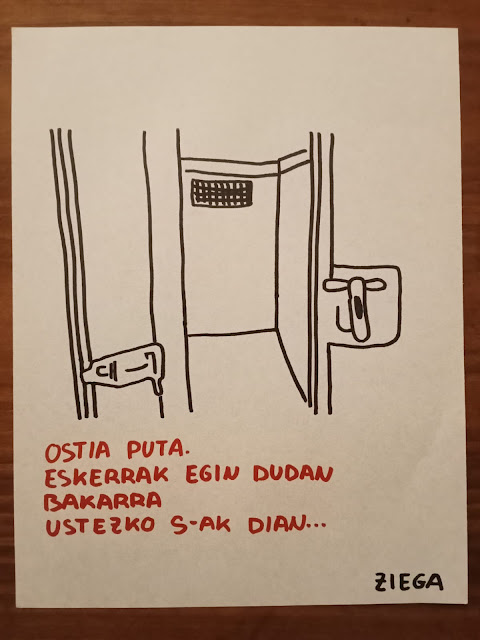 OSTIA PUTA.
ESKERRAK EGIN DUDAN
BAKARRA
USTEZKO S-AK DIAN...
ZIEGA